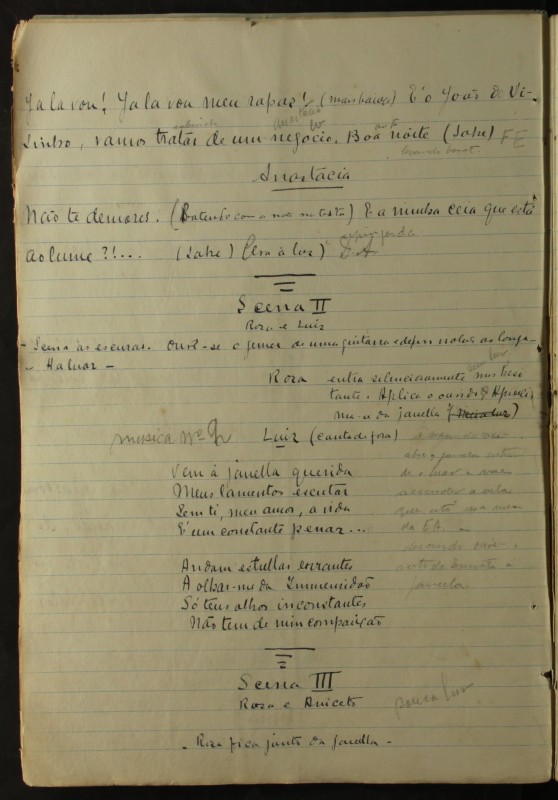 Já lá vou! Já lá vou meu rapaz! (mais baixo) É o João do Vi-
sinho, vamos tratar de um negocio. Boa noite (Sahe) FE
Anastacia
Não te demores. (Batendo com a mão na testa) E a minha ceia que está
ao lume ?!... (Sahe) (leva a luz) D.A
Scena II
Roza e Luiz
- Scena ás escuras. Ouve-se o gemer de uma guitarra e depois notas ao longe.
- Ha luar -
Roza entra silenciosamente
tante. Aplica o ouvido
da janella (Meia luz)
musica nº 2 Luiz (canta de fóra)
Vem á janella querida
Meus lamentos escutar
Sem ti, meu amor, a vida
É um constante penar...
Andam estrellas errantes
A olhar-me da Immensidão
Só teus olhos inconstantes
Não tem de mim compaixão
janela
Scena III
Roza e Aniceto
pouca luz
- Roza fica junto da janella -